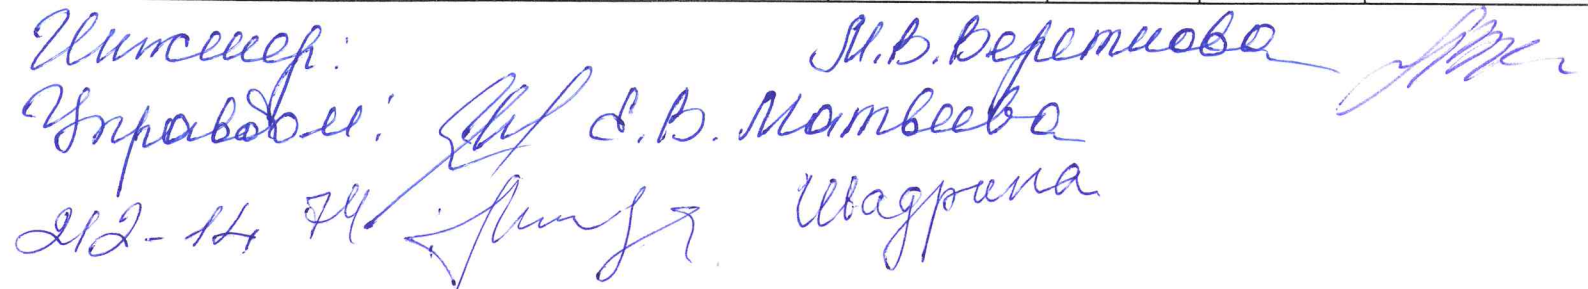 Инженер: М.В.Веретнова
Управдом: Е.В. Матвеева
212-14 74 Шадрина